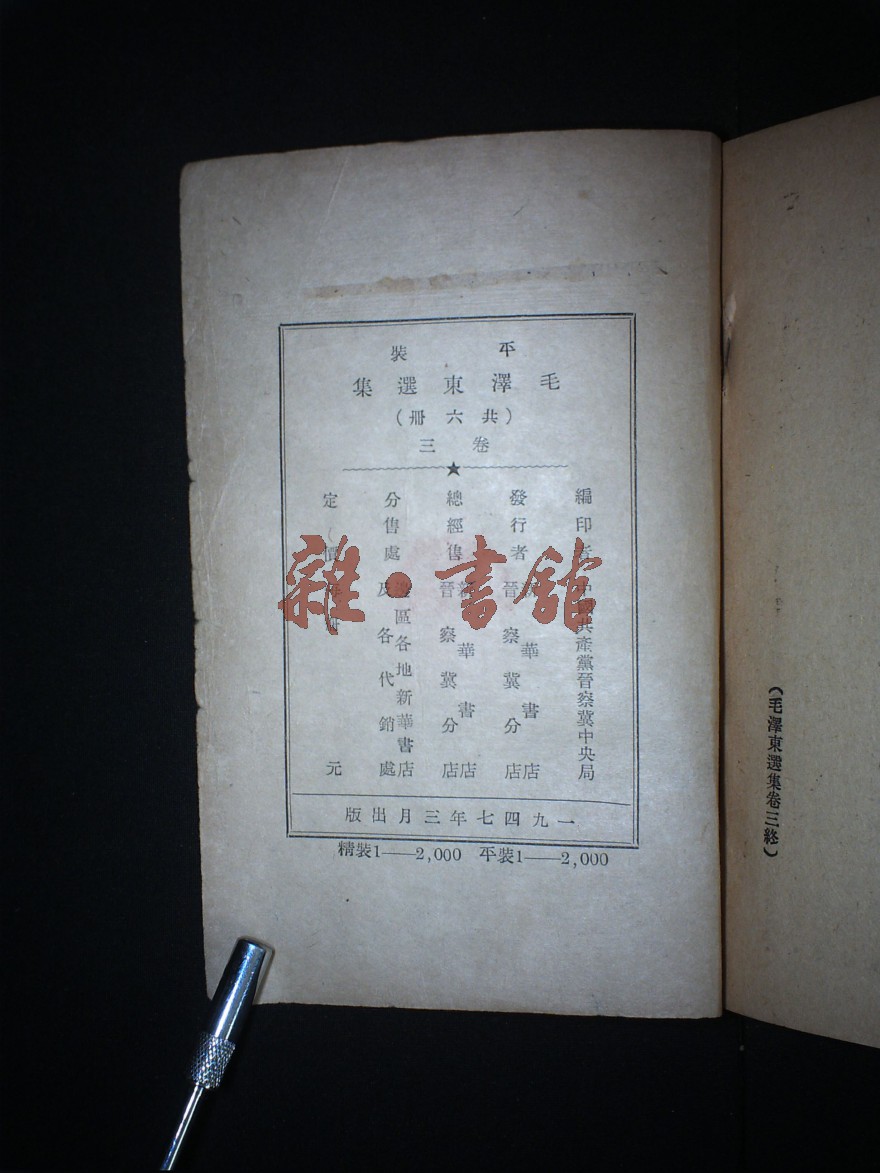 平裝
毛澤東選集
（共六冊）
卷三
★
編印者 中國共產黨晉察冀中央局
發行者 新華書店
晉察冀分店
總經售 新華書店
晉察冀分店
分售處 邊區各地新華書店
及各代銷處
定價 每冊 元
一九四七年三月出版
精裝1——2,000 平裝1——2,000
（毛澤東選集卷三終）
雜·書館